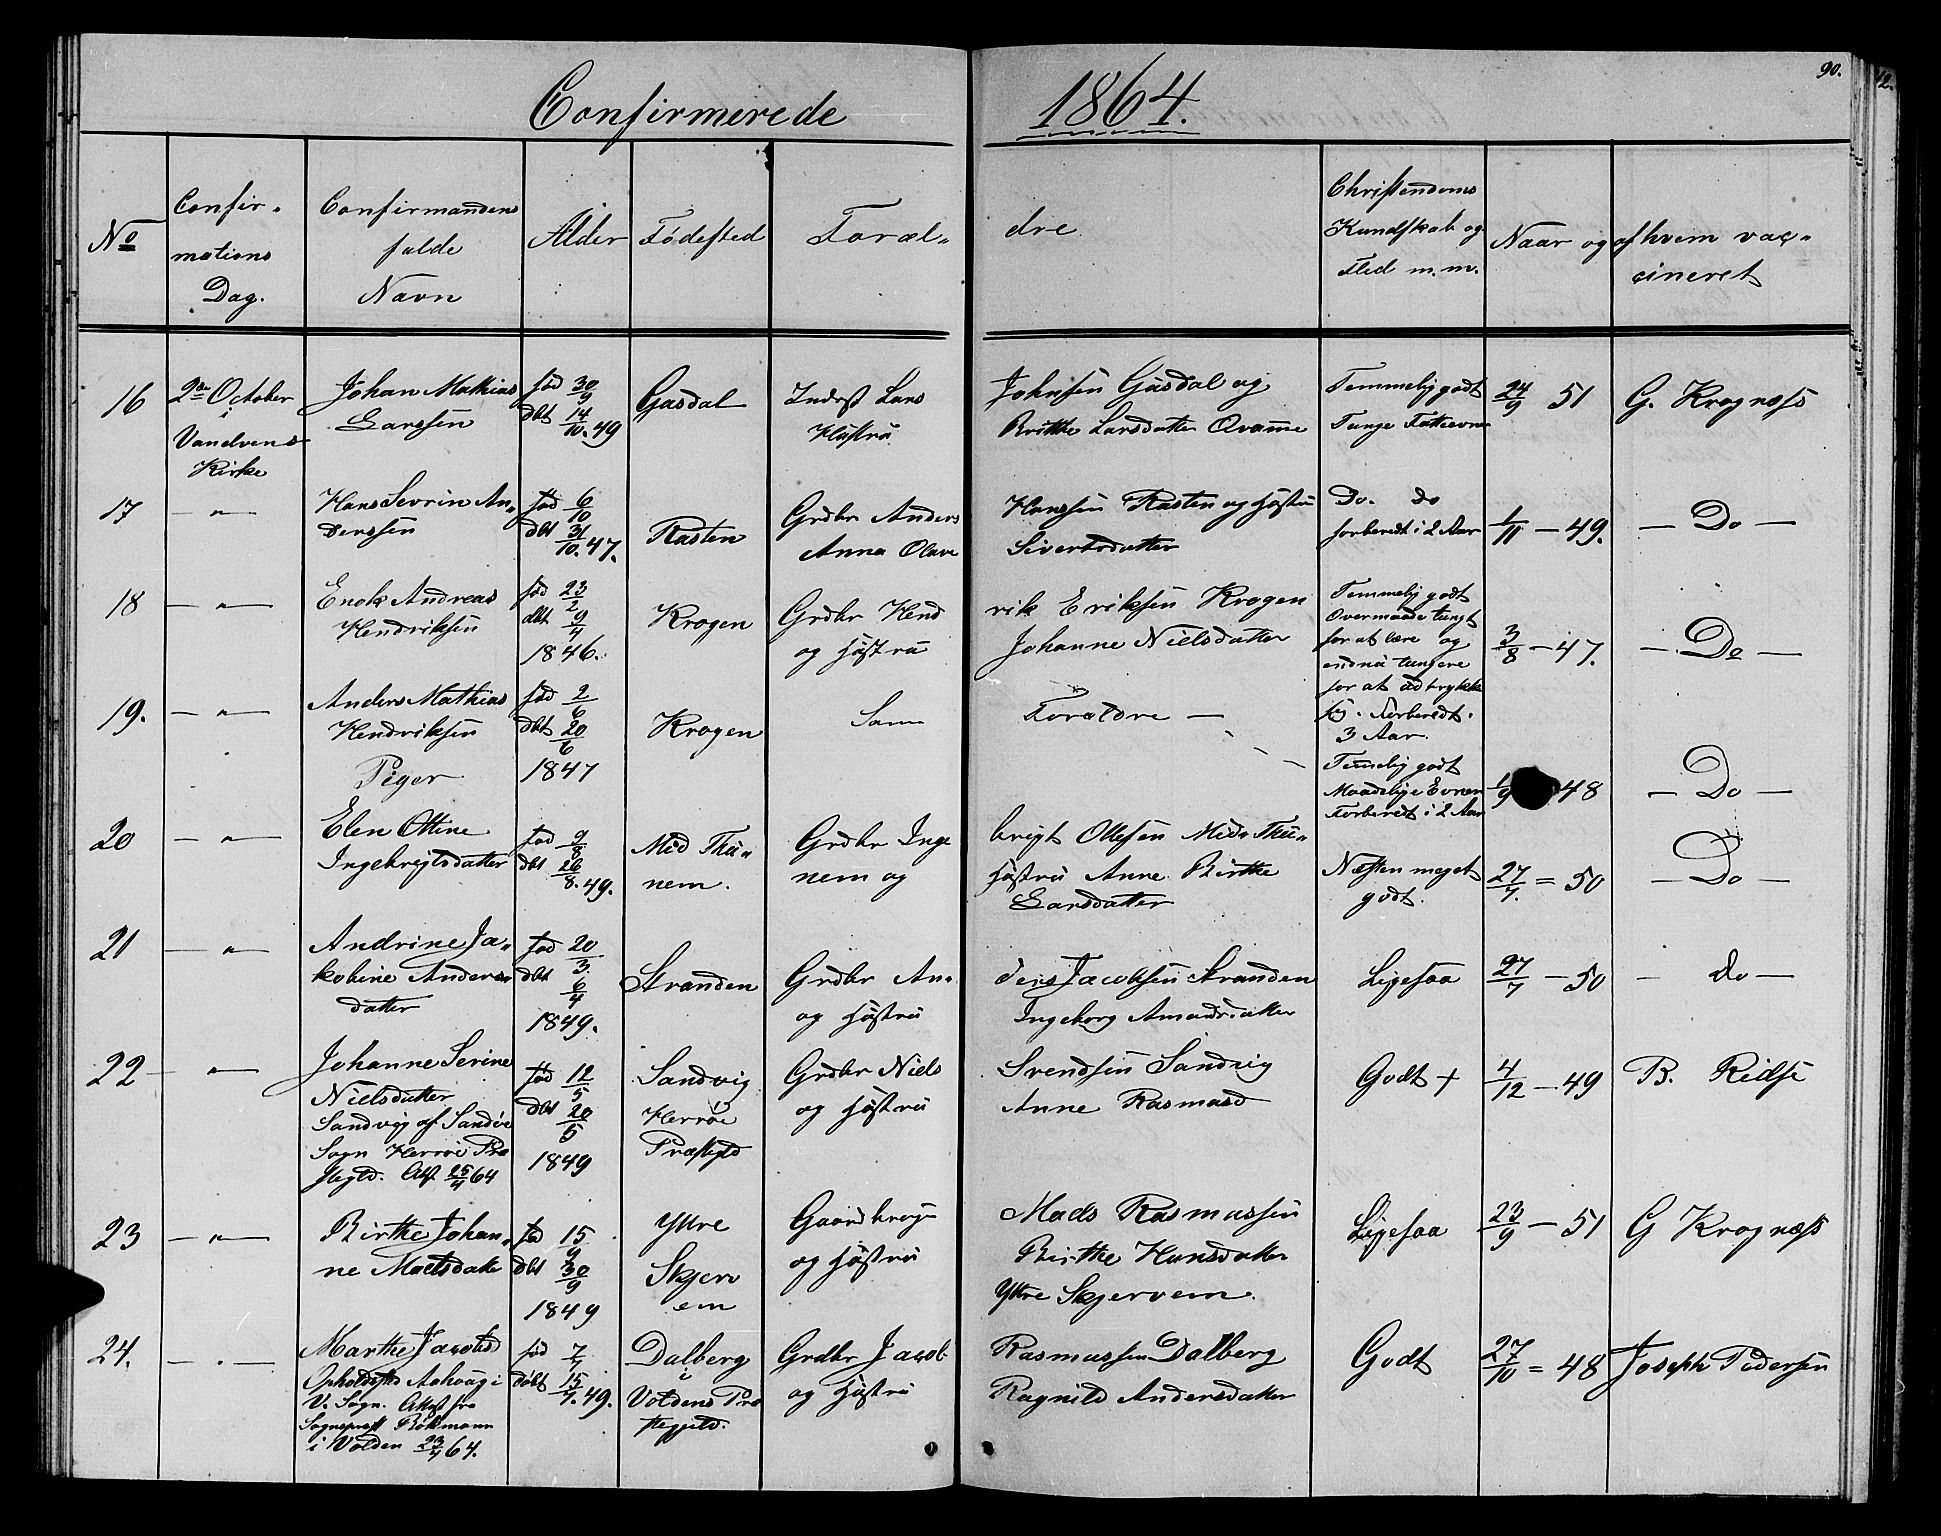 Confirmerede 1864. 90.
No
Confir-
mations
Dag.
Confirmandens
fulde
Navn
Alder
Fødested
Foræl-
dre
Christendoms
Kundskab og
Flid m.m.
Naar og af hvem vac-
cineret
16
2den October
i
Vandvens
Kirke
Johan Mathias
Larssen
fød 30/9
dbt 14/10. 49
Gasdal
Inderst Lars
Hustru
Johnsen Gasdal og
Birthe Larsdatter
Temmelig godt
24/9 51
G. Krognæss
17
— " —
Hans Sevrin An-
derssen
fød 6/10
dbt 31/10. 47.
Rasten
Grdbr Anders
Anna Olave
Hanssen Rasten og Hustru
Sivertsdatter
Do. do
forberedt i 2 Aar
1/11 — 49.
— Do —
18
— " —
Enok Andreas
Hendriksen
fød 23/2
dbt 9/4
1846.
Krogen
Grdbr Hend
og Hustru
rik Eriksen Krogen
Johanne Nielsdatter
Temmelig godt
Overmaade tungt
for at lære og
endnu tungere
for at udtrykke
sig. Forberedt.
3 Aar.
3/8 — 47.
— Do —
19.
— " —
Anders Mathias
Hendriksen
fød 2/6
dbt 20/6
1847
Krogen
Samme
Forældre —
Temmelig godt
Maadelige Evner
Forberedt i 2 Aar
1/9 48
— Do —
Piger
20
— " —
Elen Ottine
Ingebrigtsdatter
fød 9/8
dbt 26/8. 49.
Mid Thu-
nem.
Grdbr Inge
nem og
brigt Ollesen Mid-Thu-
Hustru Anne Birthe
Larsdatter
Næsten meget
godt.
27/7. = 50
— Do —
21
— " —
Andrine Ja-
kobine Anders-
datter
fød 20/3.
dbt 6/4
1849.
Stranden
Grdbr An-
og Hustru
ders Jacobsen Stranden
Ingeborg Amundsdatter
Ligesaa
27/7 — 50
— do —
22
— " —
Johanne Serine
Nielsdatter
Sandvig af Sandøe
Sogn Herrøe Præ
stegld. Att 25/4 64
fød 12/5
dbt 20/5
1849
Sandvig
Herrøe
Præstgld
Grdbr Niels
og Hustru
Svendsen Sandvig
Anne Rasmusd
Godt +
4/12 — 49
B. Ridse
23
— " —
Birthe Johan-
ne Madsdatter
fød 15/9
dbt 30/9
1849
Yttre
Skjerv
em
Gaardbruger
og Hustru
Mads Rasmussen
Birthe Hansdatter
Yttre Skjervem.
Ligesaa
23/9 — 51
G Krognæss
24.
— " —
Marthe Jacobsd
Opholdssted Aahoug i
V. Sogn. Attest fra
Sognepræst
i Volden 23/4 64.
fød 7/7
døbt 15/7. 49.
Dalberg
i
Voldens Præ
stegjeld.
Grdbr Jacob
og Hustru
Rasmussen Dalberg
Ragnild Andersdatter
Godt
27/10 = 48
Joseph Pedersen